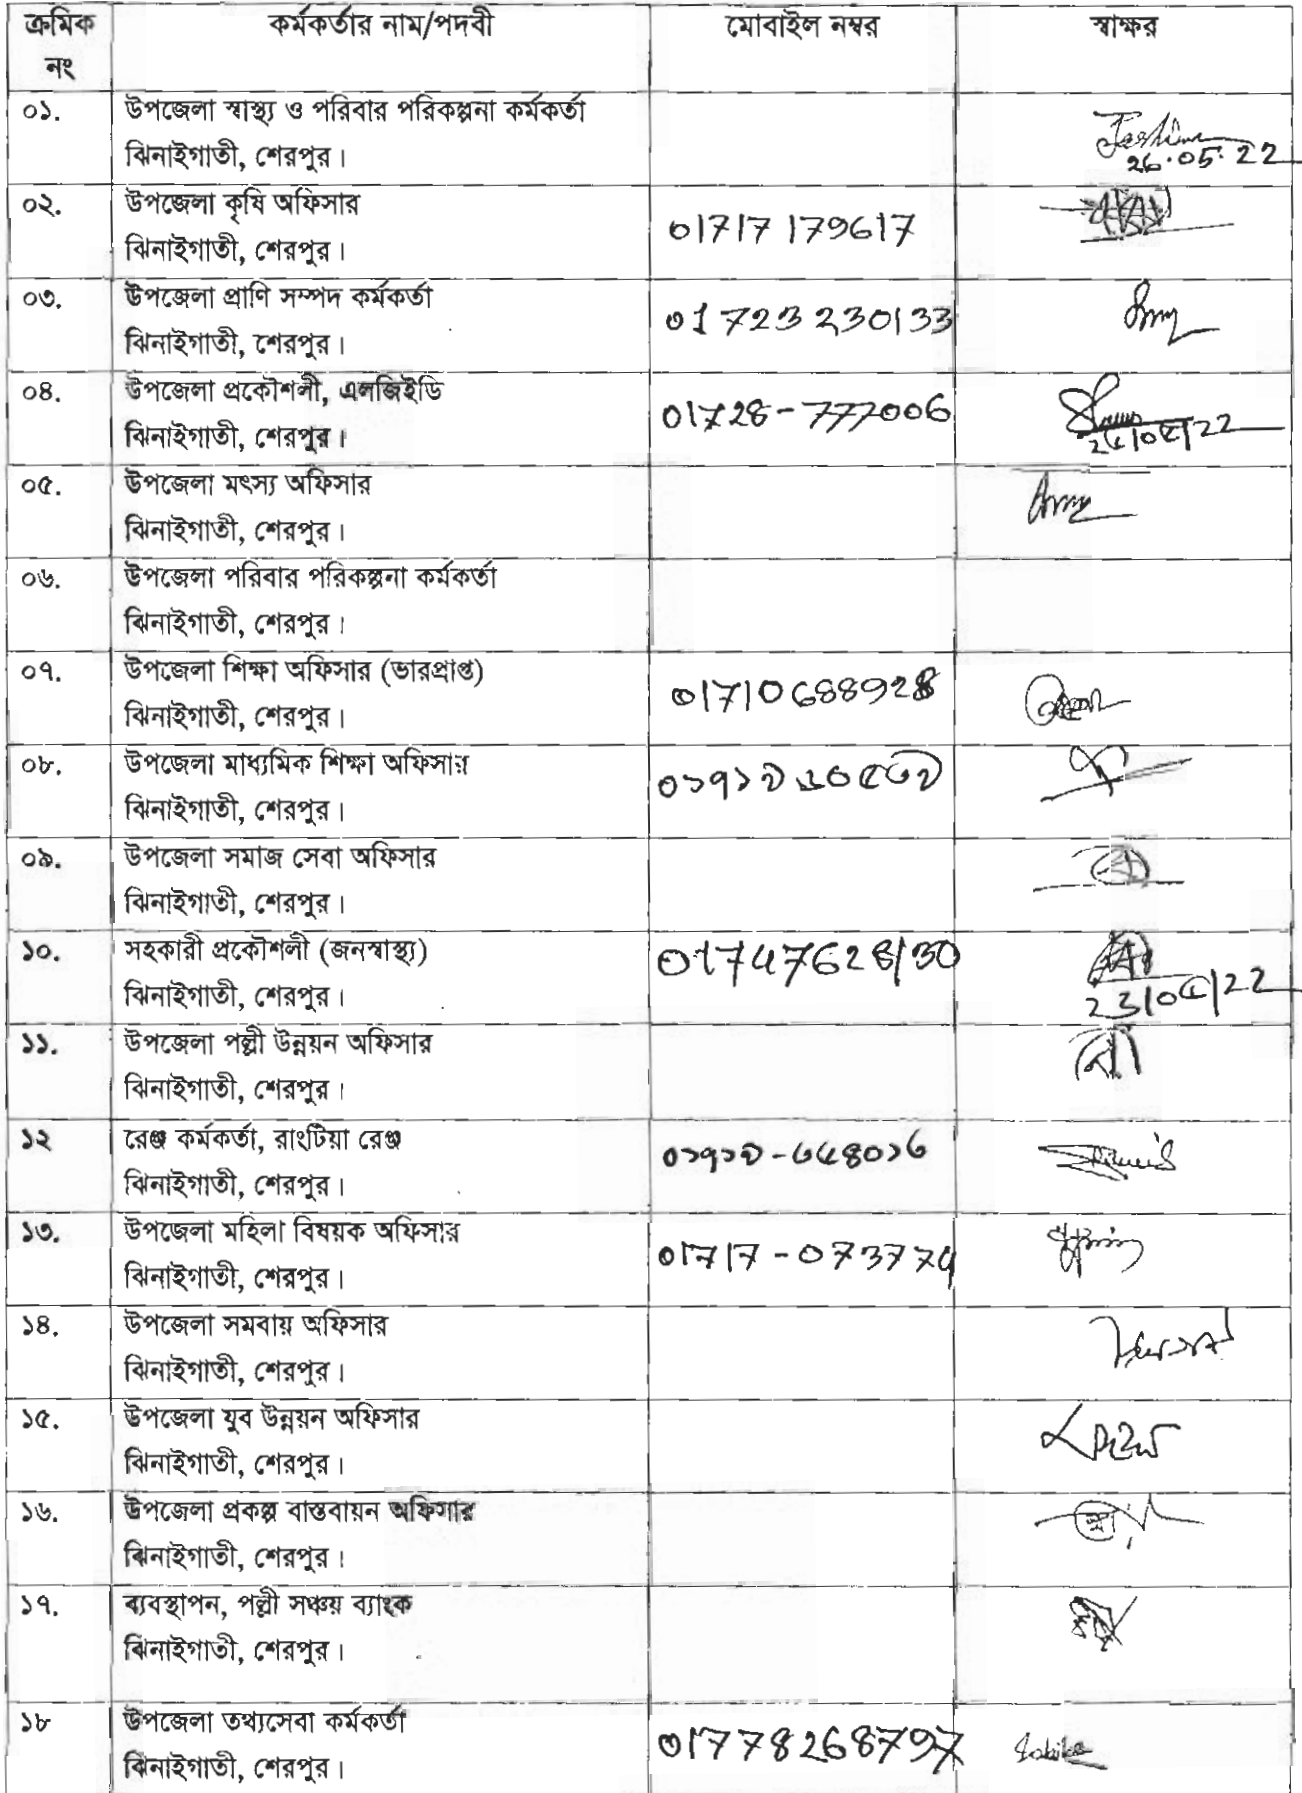 ক্রমিক নং কর্মকর্তার নাম/পদবী মোবাইল নম্বর স্বাক্ষর
০১. উপজেলা স্বাস্থ্য ও পরিবার পরিকল্পনা কর্মকর্তা
ঝিনাইগাতী, শেরপুর। 26.05.22
০২. উপজেলা কৃষি অফিসার
ঝিনাইগাতী, শেরপুর। 01717 179617
০৩. উপজেলা প্রাণি সম্পদ কর্মকর্তা
ঝিনাইগাতী, শেরপুর। 01723 230133
০৪. উপজেলা প্রকৌশলী, এলজিইডি
ঝিনাইগাতী, শেরপুর। 01728-777006
০৫. উপজেলা মৎস্য অফিসার
ঝিনাইগাতী, শেরপুর।
০৬. উপজেলা পরিবার পরিকল্পনা কর্মকর্তা
ঝিনাইগাতী, শেরপুর।
০৭. উপজেলা শিক্ষা অফিসার (ভারপ্রাপ্ত)
ঝিনাইগাতী, শেরপুর। 01710688928
০৮. উপজেলা মাধ্যমিক শিক্ষা অফিসার
ঝিনাইগাতী, শেরপুর।
০৯. উপজেলা সমাজ সেবা অফিসার
ঝিনাইগাতী, শেরপুর।
১০. সহকারী প্রকৌশলী (জনস্বাস্থ্য)
ঝিনাইগাতী, শেরপুর। 01747628130
১১. উপজেলা পল্লী উন্নয়ন অফিসার
ঝিনাইগাতী, শেরপুর।
১২ রেঞ্জ কর্মকর্তা, রাংটিয়া রেঞ্জ
ঝিনাইগাতী, শেরপুর।
১৩. উপজেলা মহিলা বিষয়ক অফিসার
ঝিনাইগাতী, শেরপুর। 01717-073774
১৪. উপজেলা সমবায় অফিসার
ঝিনাইগাতী, শেরপুর।
১৫. উপজেলা যুব উন্নয়ন অফিসার
ঝিনাইগাতী, শেরপুর।
১৬. উপজেলা প্রকল্প বাস্তবায়ন অফিসার
ঝিনাইগাতী, শেরপুর।
১৭. ব্যবস্থাপন, পল্লী সঞ্চয় ব্যাংক
ঝিনাইগাতী, শেরপুর।
১৮ উপজেলা তথ্যসেবা কর্মকর্তা
ঝিনাইগাতী, শেরপুর। 01778268797